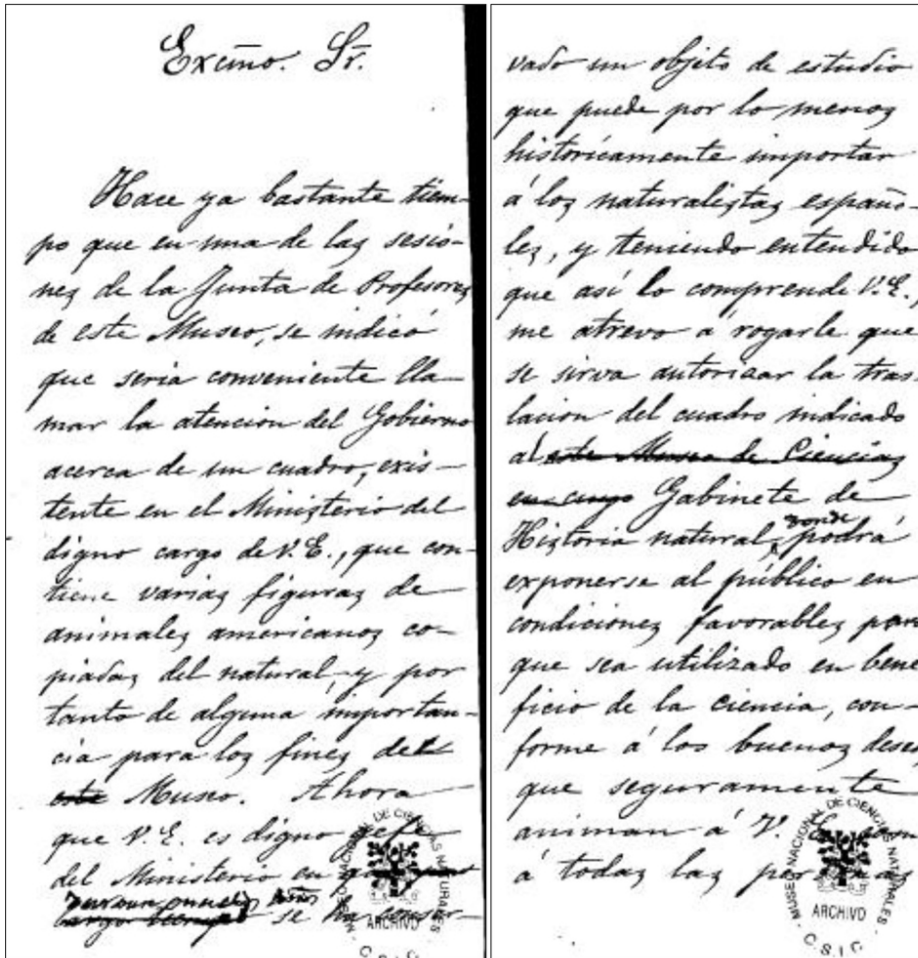 Excmo. Sr.
Hace ya bastante tiem-
po que en una de las sesio-
nes de la Junta de Profesores
de este Museo, se indicó
que seria conveniente lla-
mar la atencion del Gobierno
acerca de un cuadro, exis-
tente en el Ministerio del
digno cargo de V.E., que con-
tiene varias figuras de
animales americanos co-
piadas del natural, y por
tanto de alguna importan-
cia para los fines del
este Museo. Ahora
que V.E. es digno gefe
del Ministerio en que
años
largo tiempo se ha conser-
vado un objeto de estudio
que puede por lo menos
historicamente importar
á los naturalistas españo-
les, y teniendo entendido
que así lo comprende V.E.,
me atrevo á rogarle que
se sirva autorizar la tras-
lacion del cuadro indicado
al este Museo de Ciencias
en cuyo Gabinete de
donde
Historia natural, podrá
exponerse al público en
condiciones favorables para
que sea utilizado en bene
ficio de la ciencia, con-
forme á los buenos deseos
que seguramente
animan á V. E. como
á todas las personas
MUSEO NACIONAL DE CIENCIAS NATURALES
ARCHIVO
C.S.I.C.
MUSEO NACIONAL DE CIENCIAS NATURALES
ARCHIVO
C.S.I.C.